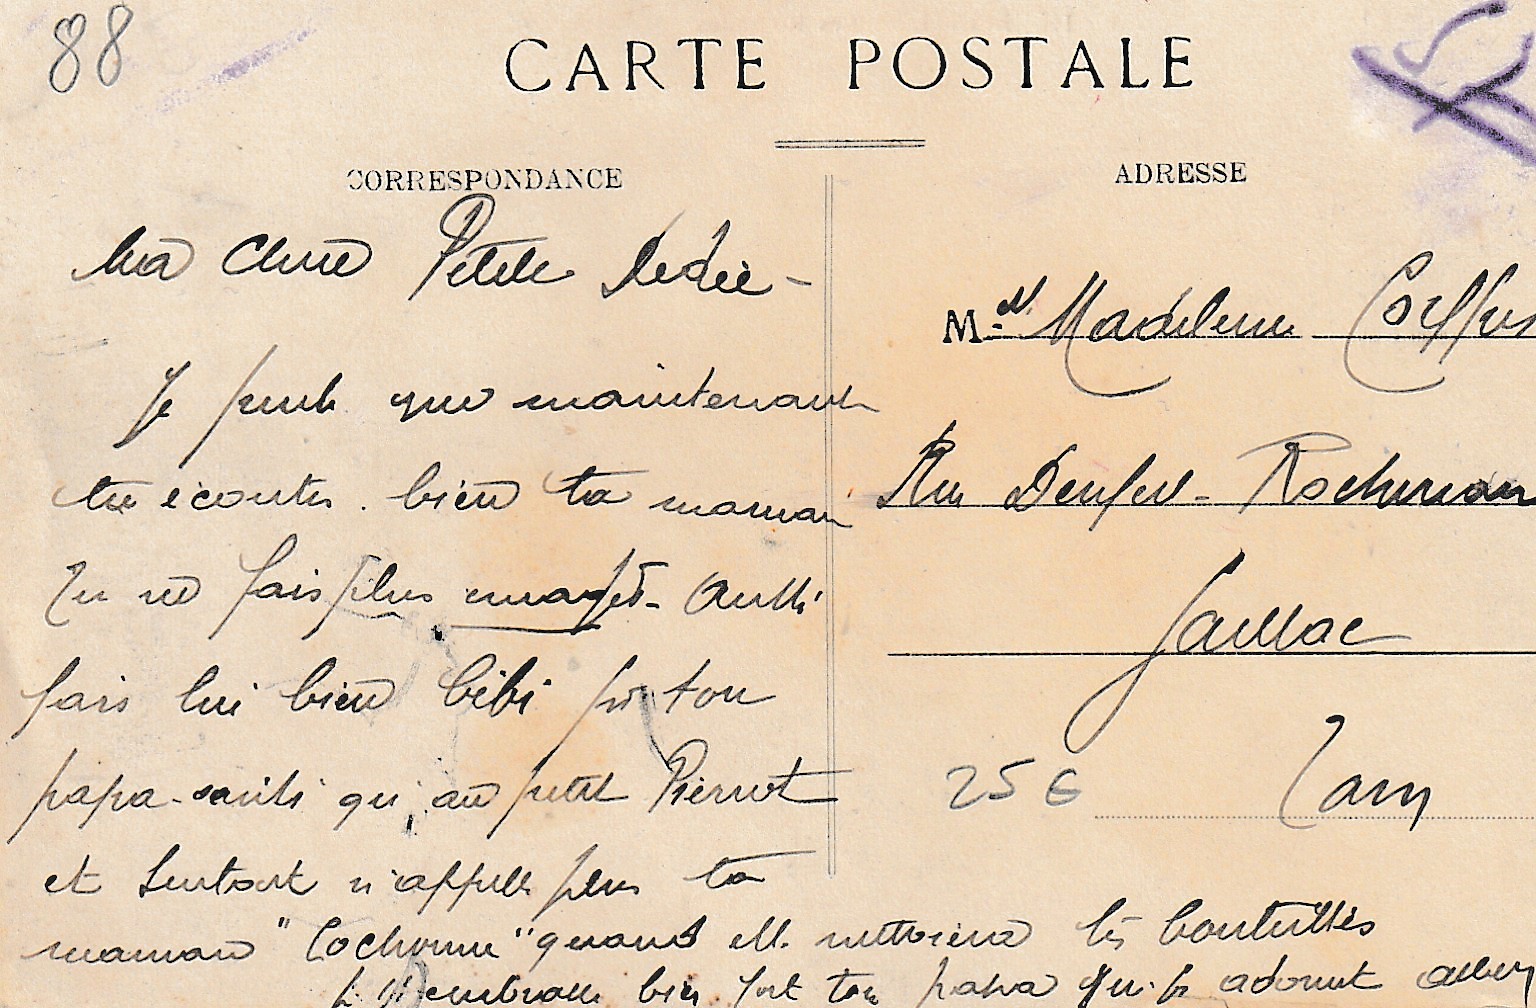 88
CARTE POSTALE
CORRESPONDANCE
ADRESSE
Ma Chere Petite Dedée -
Je pense que maintenant
tu écoutes bien ta maman
Tu ne fais plus enrager - Aussi
fais lui bien bibi pr ton
papa ainsi qu'au petit Pierrot
et surtout n'appelle plus ta
maman "Cochonne" quand elle nettoiera les bouteilles
embrasse bien fort ton papa qui t'adore
Melle Madeleine
Rue Denfert-Rochereau
Gaillac
Tarn
25 €